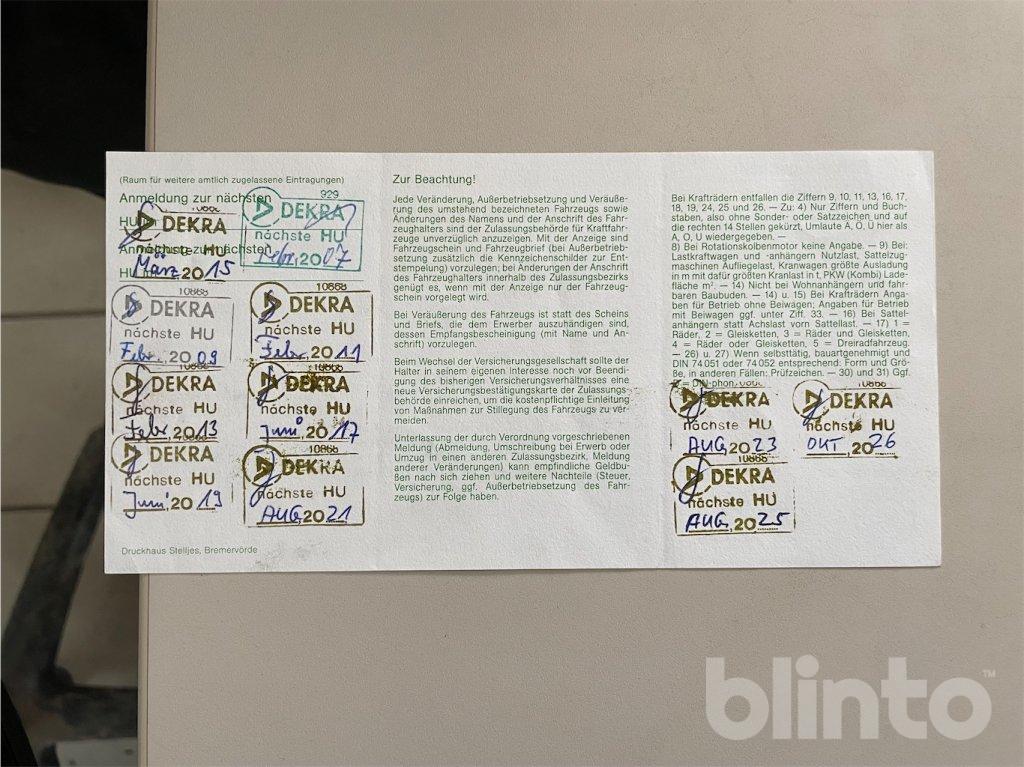 (Raum für weitere amtlich zugelassene Eintragungen)
Anmeldung zur nächsten
HU
Anmeldung zur nächsten
HU
929
DEKRA
nächste HU
Febr. 2007
DEKRA
nächste HU
März 2015
10868
DEKRA
nächste HU
Febr. 2009
10868
DEKRA
nächste HU
Febr. 2011
DEKRA
nächste HU
Febr. 2013
10868
DEKRA
nächste HU
Juni 2017
DEKRA
nächste HU
Juni 2019
10868
DEKRA
nächste HU
AUG. 2021
Druckhaus Stelljes, Bremervörde
Zur Beachtung!
Jede Veränderung, Außerbetriebsetzung und Veräuße-
rung des umstehend bezeichneten Fahrzeugs sowie
Änderungen des Namens und der Anschrift des Fahr-
zeughalters sind der Zulassungsbehörde für Kraftfahr-
zeuge unverzüglich anzuzeigen. Mit der Anzeige sind
Fahrzeugschein und Fahrzeugbrief (bei Außerbetrieb-
setzung zusätzlich die Kennzeichenschilder zur Ent-
stempelung) vorzulegen; bei Änderungen der Anschrift
des Fahrzeughalters innerhalb des Zulassungsbezirks
genügt es, wenn mit der Anzeige nur der Fahrzeug-
schein vorgelegt wird.
Bei Veräußerung des Fahrzeugs ist statt des Scheins
und Briefs, die dem Erwerber auszuhändigen sind,
dessen Empfangsbescheinigung (mit Name und An-
schrift) vorzulegen.
Beim Wechsel der Versicherungsgesellschaft sollte der
Halter in seinem eigenen Interesse noch vor Beendi-
gung des bisherigen Versicherungsverhältnisses eine
neue Versicherungsbestätigungskarte der Zulassungs-
behörde einreichen, um die kostenpflichtige Einleitung
von Maßnahmen zur Stillegung des Fahrzeugs zu ver-
meiden.
Unterlassung der durch Verordnung vorgeschriebenen
Meldung (Abmeldung, Umschreibung bei Erwerb oder
Umzug in einen anderen Zulassungsbezirk, Meldung
anderer Veränderungen) kann empfindliche Geldbu-
ßen nach sich ziehen und weitere Nachteile (Steuer,
Versicherung, ggf. Außerbetriebsetzung des Fahr-
zeugs) zur Folge haben.
Bei Krafträdern entfallen die Ziffern 9, 10, 11, 13, 16, 17,
18, 19, 24, 25 und 26. — Zu: 4) Nur Ziffern und Buch-
staben, also ohne Sonder- oder Satzzeichen und auf
die rechten 14 Stellen gekürzt, Umlaute Ä, Ö, Ü hier als
A, O, U wiedergegeben. —
8) Bei Rotationskolbenmotor keine Angabe. — 9) Bei
Lastkraftwagen und -anhängern Nutzlast, Sattelzug-
maschinen Aufliegelast, Kranwagen größte Ausladung
in m mit dafür größten Kranlast in t, PKW (Kombi) Lade-
fläche m². — 14) Nicht bei Wohnanhängern und fahr-
baren Baubuden. — 14) u. 15) Bei Krafträdern Anga-
ben für Betrieb ohne Beiwagen; Angaben für Betrieb
mit Beiwagen ggf. unter Ziff. 33. — 16) Bei Sattel-
anhängern statt Achslast vorn Sattellast. — 17) 1 =
Räder, 2 = Gleisketten, 3 = Räder und Gleisketten,
4 = Räder oder Gleisketten, 5 = Dreiradfahrzeug.
— 26) u. 27) Wenn selbsttätig, bauartgenehmigt und
DIN 74 051 oder 74 052 entsprechend: Form und Grö-
ße, in anderen Fällen: Prüfzeichen. — 30) und 31) Ggf.
= DIN-phon.
DEKRA
nächste HU
AUG. 2023
10868
DEKRA
nächste HU
OKT. 2026
DEKRA
nächste HU
AUG. 2025
blinto™